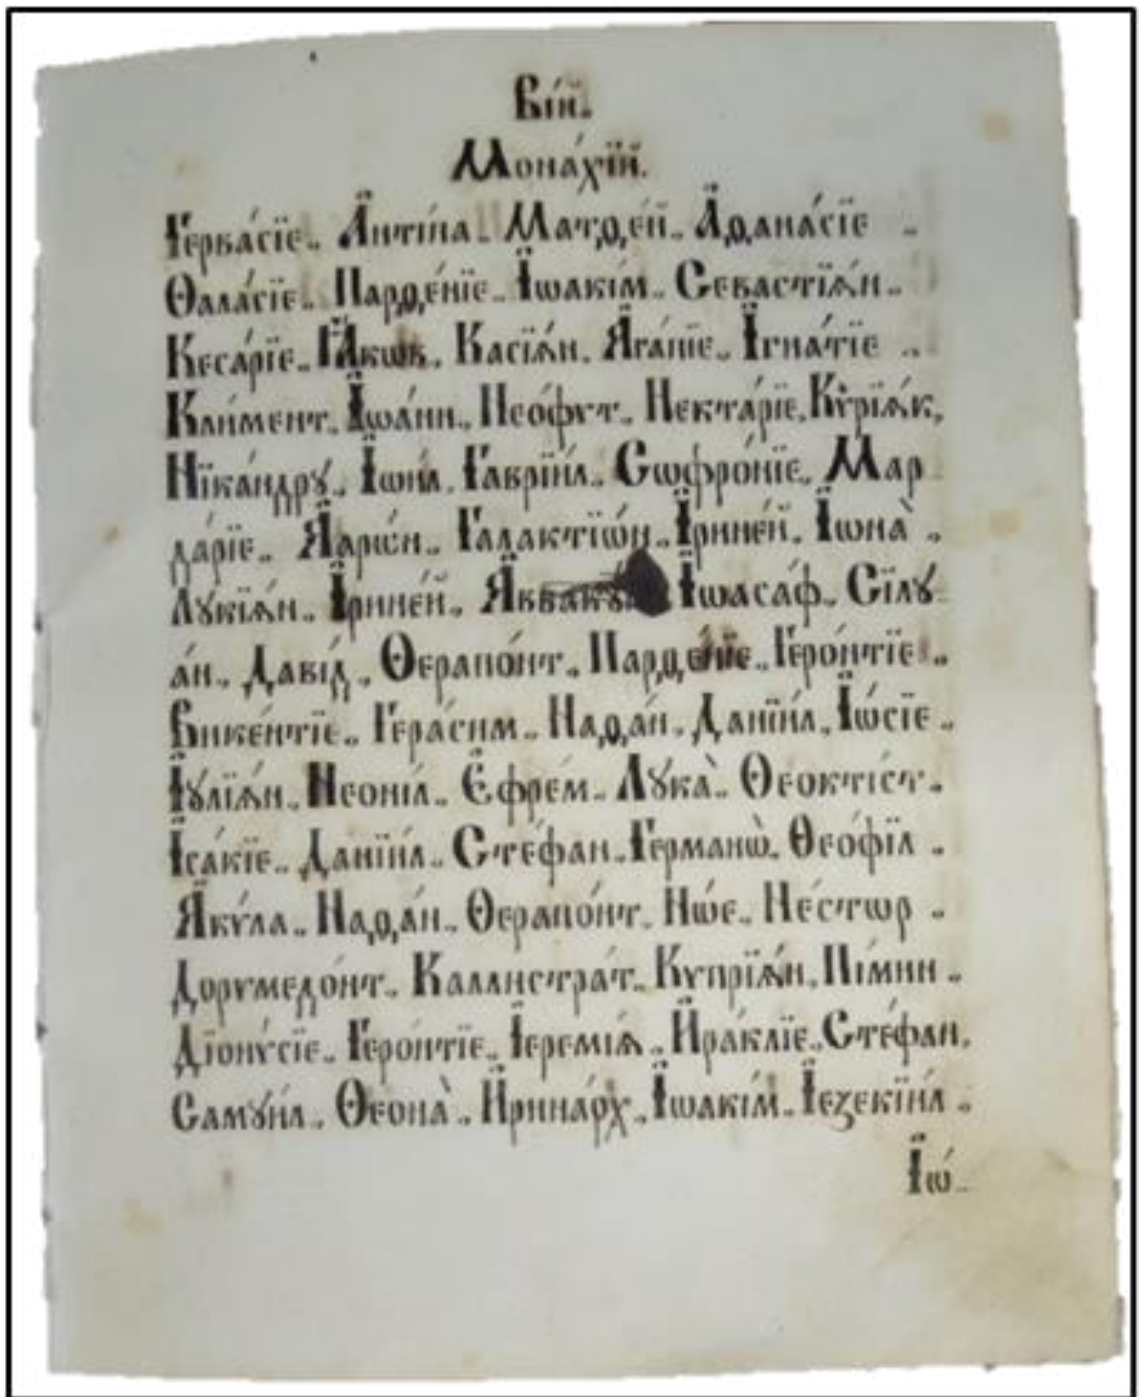 Вїй.
Мона́хїй.
Герва́сїе.. Анті́па.. Матѳе́й.. Аѳана́сїе ..
Ѳала́сїе.. Парѳе́нїе.. Їѡакі́м.. Севастїѧ́н..
Кеса́рїе.. Їа́кѡв. Касїѧ́н. Ѧга́пїе.. Їгна́тїе ..
Кли́мент. Їѡа́нн.. Нео́фѵт.. Некта́рїе. Кѷрїѧ́к.
Нїка́ндрꙋ.. Їѡи́л. Гаврїи́л.. Сѡфро́нїе.. Мар
да́рїе.. Ѧарѡ́н.. Галактїѡ́н.. Їрине́й.. Їѡна̀ ..
Лꙋкїѧ́н.. Їрине́й.. Їѡаса́ф.. Сїлꙋ
а́н.. Даві́д.. Ѳерапо́нт.. Парѳе́нїе.. Геро́нтїе ..
Вике́нтїе.. Гера́сим.. Наѳа́н.. Данїи́л.. Їѡ́сїе ..
Їꙋлїѧ́н.. Неоні́л.. Єфре́м.. Лꙋка̀.. Ѳеокті́ст..
Їса́кїе.. Данїи́л.. Сте́фан.. Германѡ̀. Ѳео́фїл ..
Ѧкѵ́ла.. Наѳа́н.. Ѳерапо́нт.. Нѡ́е.. Не́стѡр ..
Дорѵмедо́нт.. Каллистра́т.. Кѵпрїѧ́н.. Пі́мин ..
Дїонѵ́сїе.. Геро́нтїе.. Їеремі́ѧ.. Йра́клїе.. Сте́фан.
Самꙋи́л.. Ѳеона̀.. Йрина́рх.. Їѡакі́м.. Їезекїи́л ..
Їѡ́..